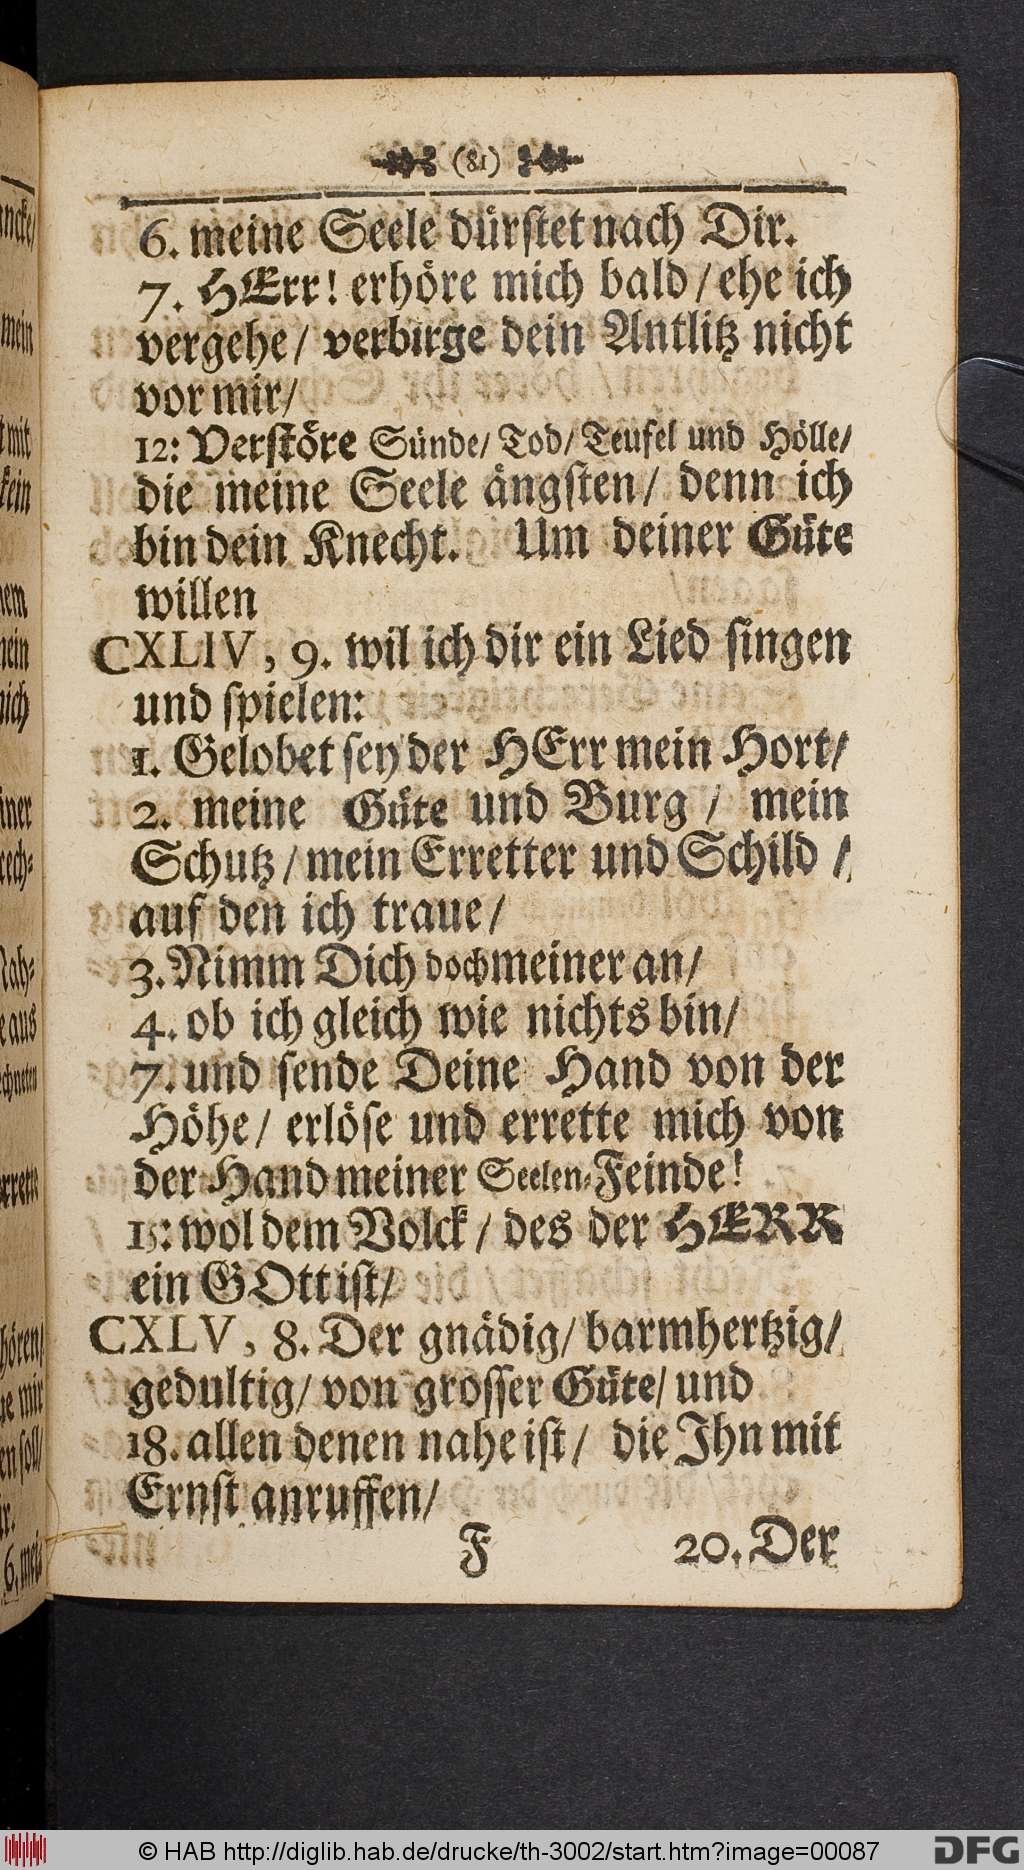 (81)
6. meine Seele dürſtet nach Dir.
7. HErr! erhöre mich bald / ehe ich
vergehe / verbirge dein Antlitz nicht
vor mir /
12: Verſtöre Sünde / Tod / Teufel und Hölle /
die meine Seele ängſten / denn ich
bin dein Knecht. Um deiner Güte
willen
CXLIV, 9. wil ich dir ein Lied ſingen
und ſpielen:
1. Gelobet ſey der HErr mein Hort /
2. meine Güte und Burg / mein
Schutz / mein Erretter und Schild /
auf den ich traue /
3. Nimm Dich doch meiner an /
4. ob ich gleich wie nichts bin /
7. und ſende Deine Hand von der
Höhe / erlöſe und errette mich von
der Hand meiner Seelen-Feinde!
15: wol dem Volck / des der HERR
ein GOtt iſt /
CXLV, 8. Der gnädig / barmhertzig /
gedultig / von groſſer Güte / und
18. allen denen nahe iſt / die Ihn mit
Ernſt anruffen /
F 20. Der
© HAB http://diglib.hab.de/drucke/th-3002/start.htm?image=00087
DFG